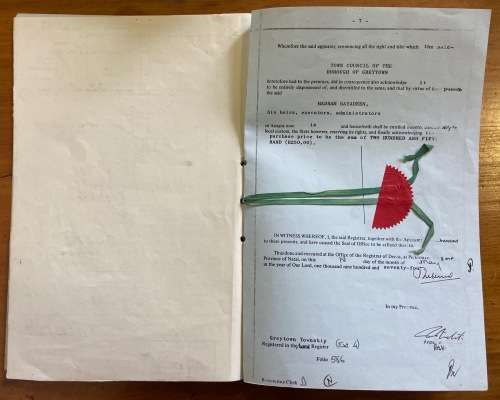 - 7 -
Wherefore the said appearer, renouncing all the right and title which the said
TOWN COUNCIL OF THE
BOROUGH OF GREYTOWN
heretofore had to the premises, did in consequence also acknowledge it
to be entirely dispossessed of, and disentitled to the same; and that by virtue of these presents
the said
HASHAM
his heirs, executors, administrators
or Assigns now is and henceforth shall be entitled thereto,
local custom, the State however, reserving its rights, and finally acknowledging the
purchase price to be the sum of TWO HUNDRED AND FIFTY
RAND (R250,00).
IN WITNESS WHEREOF, I, the said Registrar, together with the Appearer
to these presents, and have caused the Seal of Office to be affixed thereto.
Thus done and executed at the Office of the Registrar of Deeds, at
Province of Natal, on this day of the month of May
in the year of Our Lord, one thousand nine hundred and seventy-four
In my Presence,
Greytown Township
Registered in the Register
Folio